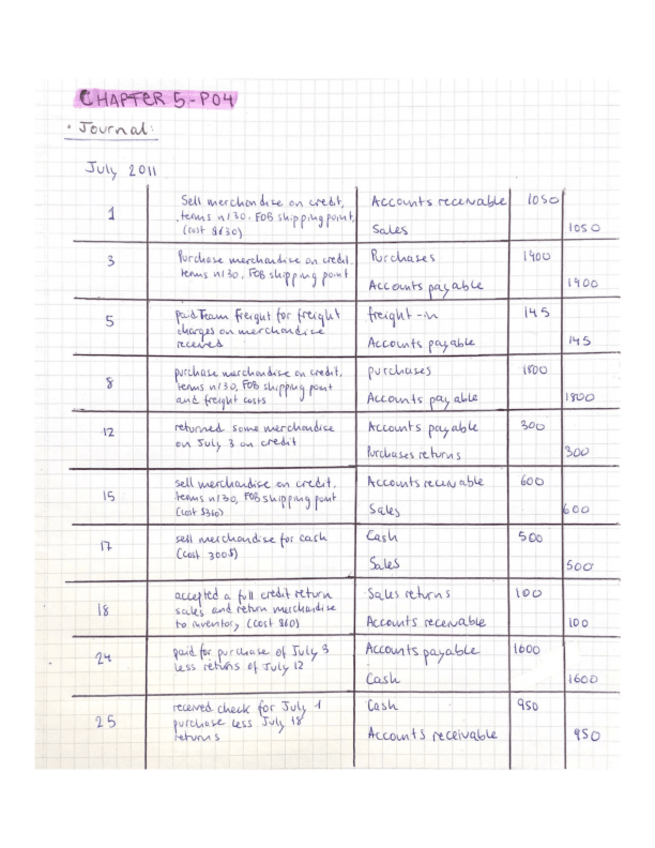 CHAPTER 5-P04
• Journal:
July 2011
1 Sell merchandise on credit, Accounts receivable 1050
terms n/30. FOB shipping point,
(cost $630) Sales 1050
3 Purchase merchandise on credit. Purchases 1400
terms n/30, FOB shipping point
Accounts payable 1400
5 paid Team freight for freight freight-in 145
charges on merchandise
received Accounts payable 145
8 purchase merchandise on credit. purchases 1800
terms n/30, FOB shipping point
and freight costs Accounts payable 1800
12 returned some merchandise Accounts payable 300
on July 3 on credit
Purchases returns 300
15 sell merchandise on credit. Accounts receivable 600
terms n/30, FOB shipping point
(cost $360) Sales 600
17 sell merchandise for cash Cash 500
(cost 300$)
Sales 500
18 accepted a full credit return Sales returns 100
sales and return merchandise
to inventory (cost $60) Accounts receivable 100
24 paid for purchase of July 3 Accounts payable 1600
less returns of July 12
Cash 1600
25 received check for July 1 Cash 950
purchase less July 18
returns Accounts receivable 950